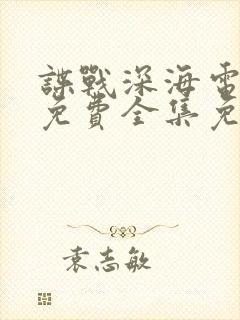 諜戰深海電
免費全集免
袁志敏